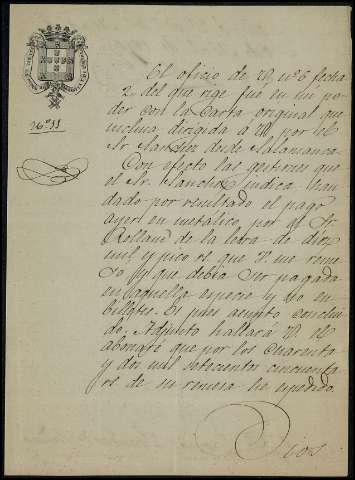 Nº 55
El oficio de V, nº 6 fecha
2 del que rige fue en mi po-
der con la Carta original que
incluia dirigida á V. por el
Sr. Sanchez desde Salamanca.
Con efecto las gestiones que
el Sr. Sanchez indica han
dado por resultado el pago
ayer en metalico, por el Sr.
Rolland de la letra de diez
mil y pico rs que V. me reme-
só y que debia ser pagada
en aquella especie y no en
billetes. Es pues asunto conclui-
do. Adjunto hallará V. el
abonaré que por los cuarenta
y dos mil setecientos cincuenta
rs de su remesa ha espedido.
Dios